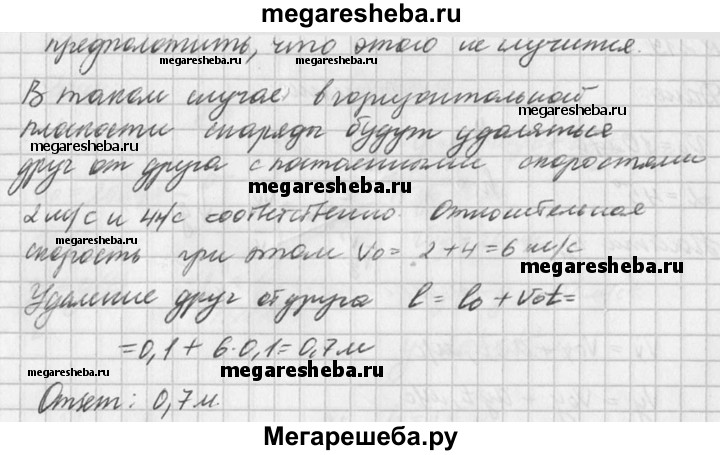 megaresheba.ru
предположить, что этого не случится.
megaresheba.ru megaresheba.ru
В таком случае в горизонтальной
megaresheba.ru megaresheba.ru
плоскости снаряды будут удаляться
друг от друга с постоянными скоростями
megaresheba.ru
2 м/с и 4 м/с соответственно. Относительная
megaresheba.ru
скорость при этом V₀ = 2 + 4 = 6 м/с
megaresheba.ru
Удаление друг от друга l = l₀ + V₀t =
= 0,1 + 6·0,1 = 0,7 м
megaresheba.ru megaresheba.ru
Ответ: 0,7 м.
megaresheba.ru
Мегарешеба.ру